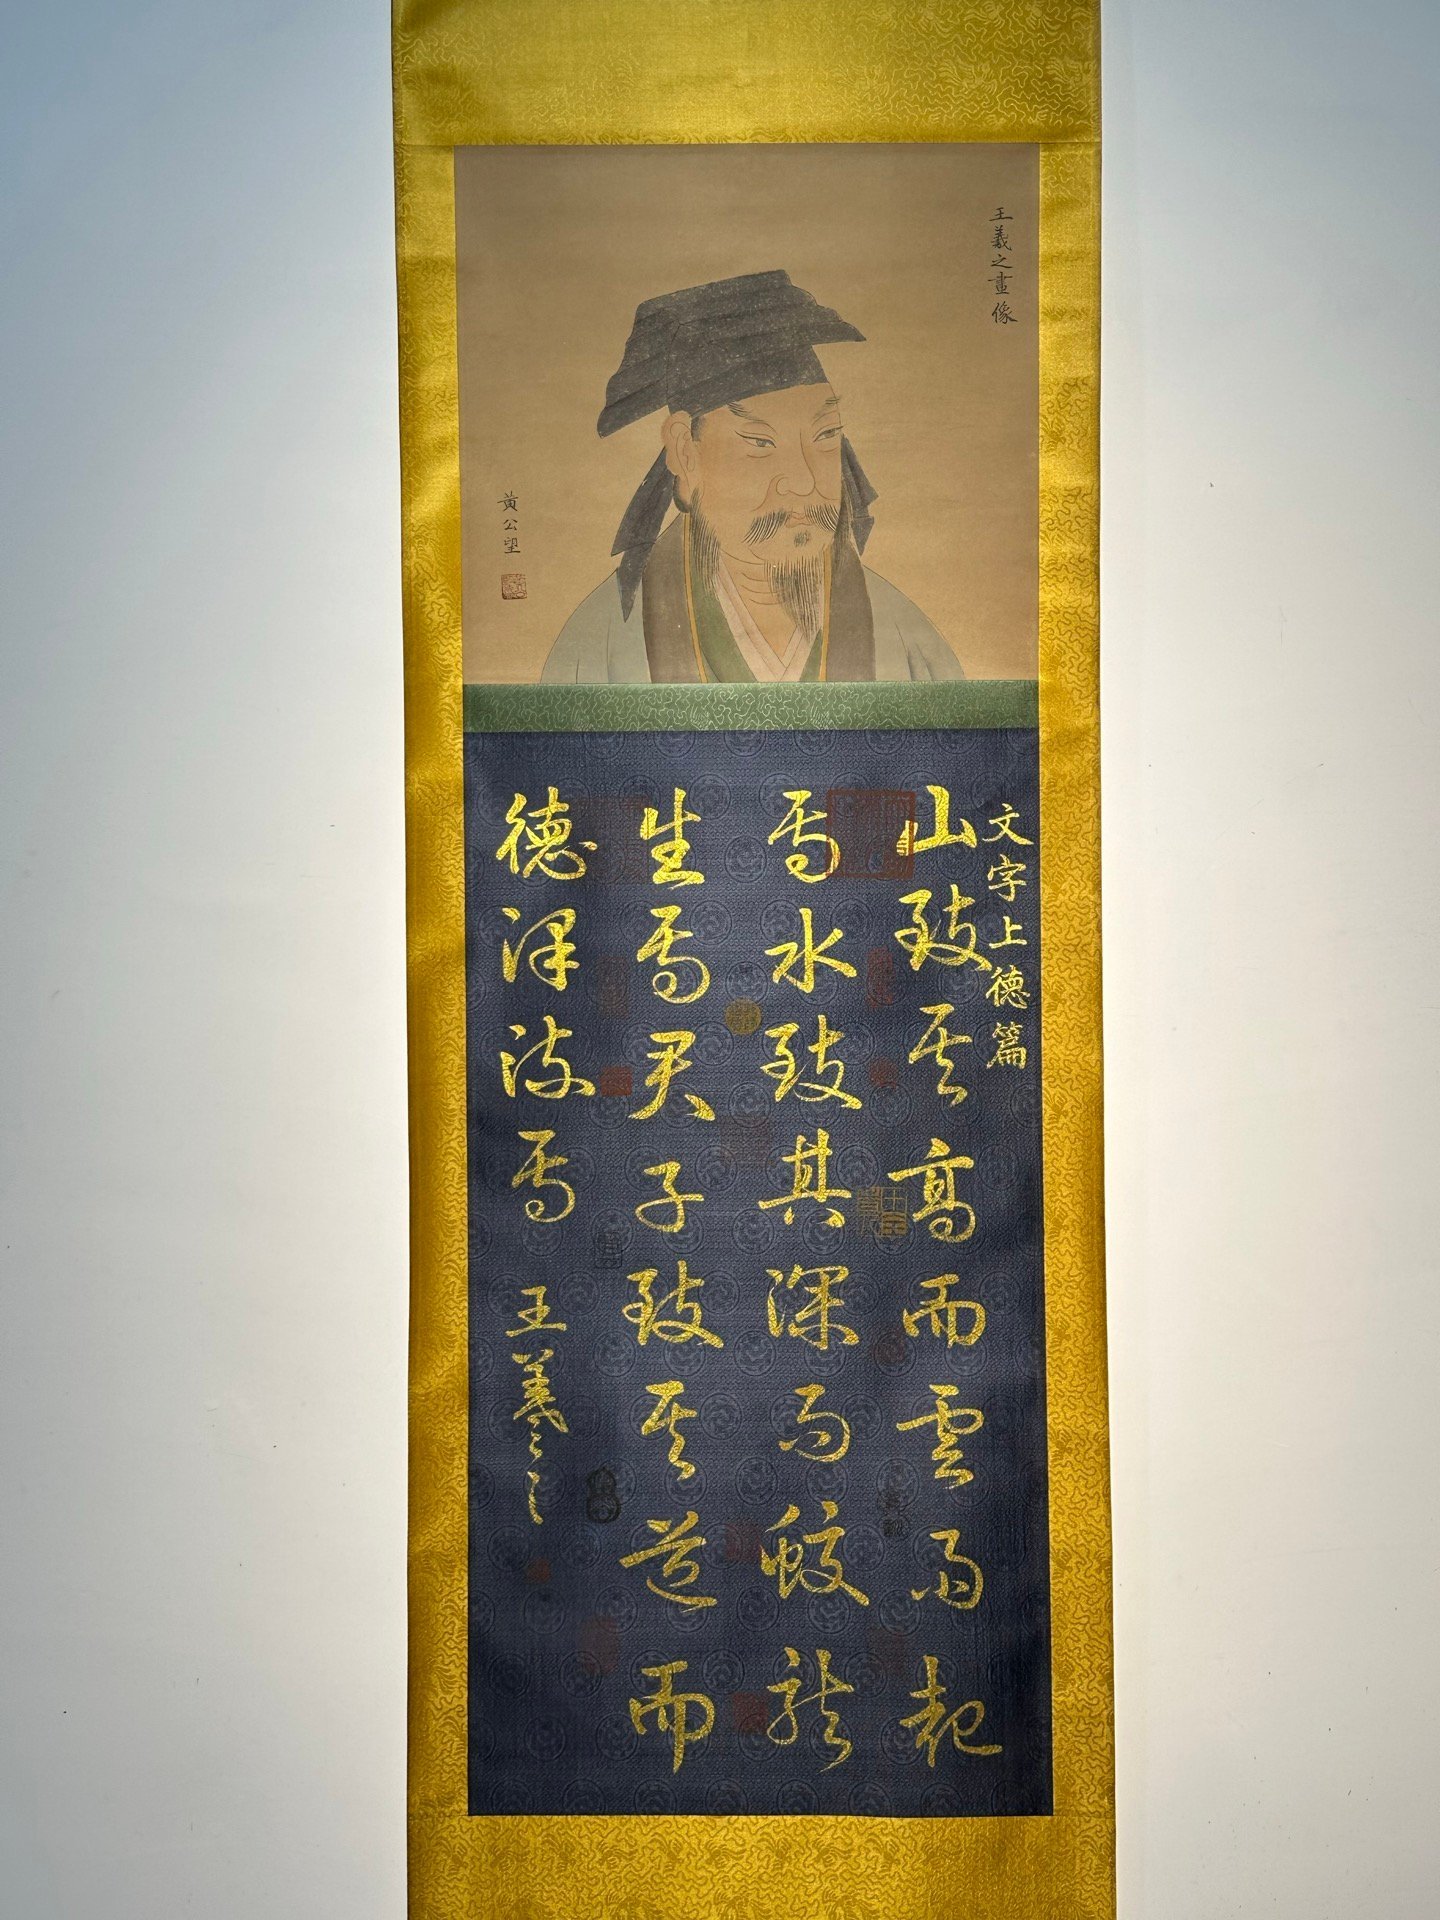 王羲之畫像
黃公望
文字上德篇
山致其高而雲雨起
焉水致其深而蛟龍
生焉君子致其道而
德澤流焉
王羲之